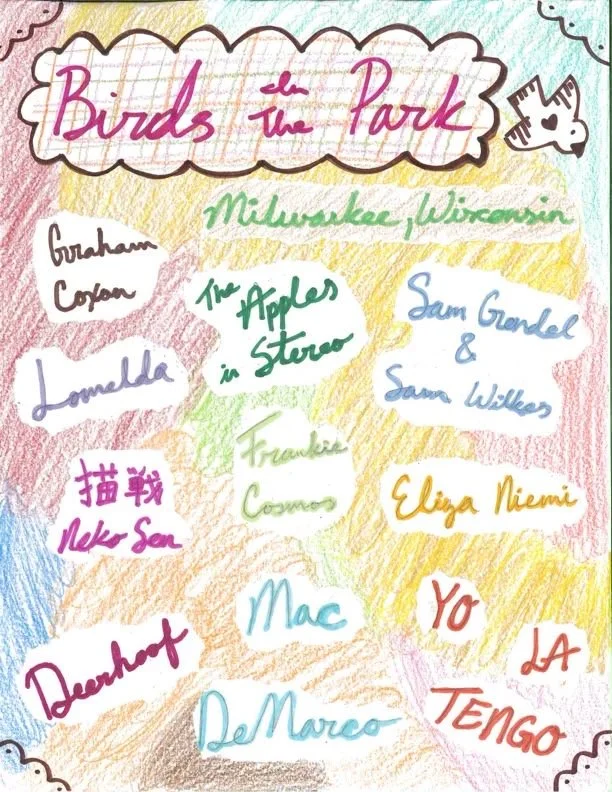 Birds In The Park
Milwaukee, Wisconsin
Graham
Coxon
The Apples
in Stereo
Sam Gendel
&
Sam Wilkes
Lomelda
Frankie
Cosmos
描戦
Neko Sen
Eliza Niemi
Deerhoof
Mac
DeMarco
YO
LA
TENGO